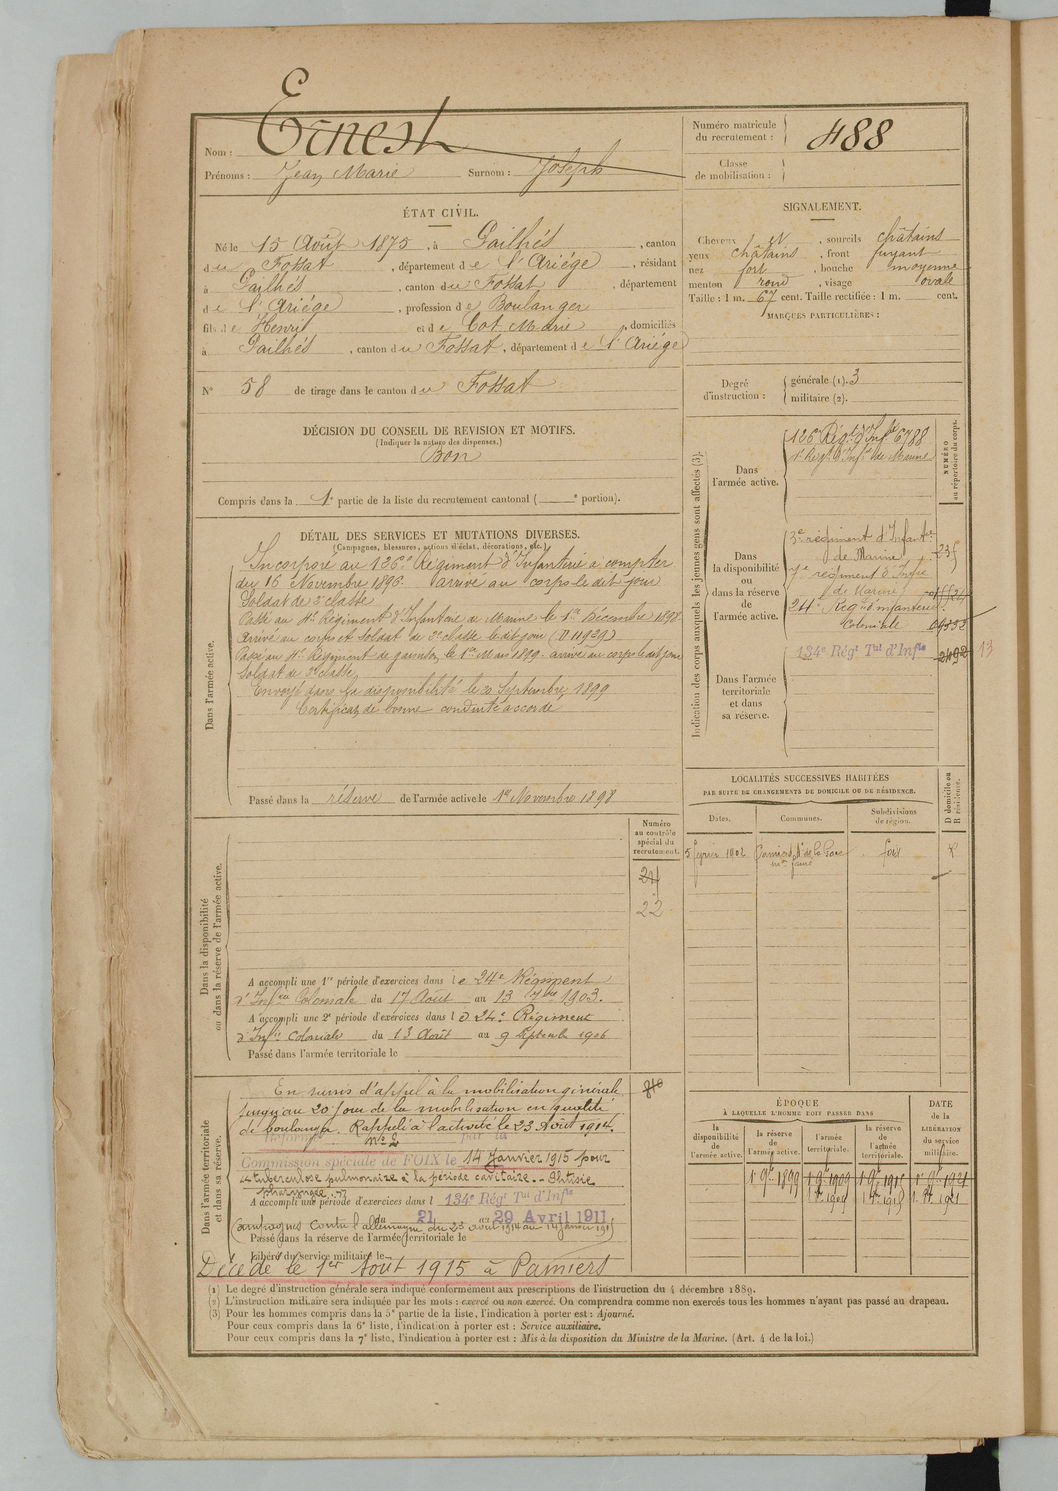 Nom : Ernest
Prénoms : Jean Marie Surnom : Joseph
Numéro matricule
du recrutement : 488
Classe
de mobilisation :
ÉTAT CIVIL.
Né le 15 Août 1875, à Pailhés, canton
du Fossat, département de l'Ariége, résidant
à Pailhés, canton du Fossat, département
de l'Ariége, profession de Boulanger
fils de Henri et de Cot Marie, domiciliés
à Pailhés, canton du Fossat, département de l'Ariége
N° 58 de tirage dans le canton du Fossat
SIGNALEMENT.
Cheveux et, sourcils châtains
yeux châtains, front fuyant
nez fort, bouche moyenne
menton rond, visage ovale
Taille : 1 m. 67 cent. Taille rectifiée : 1 m. cent.
MARQUES PARTICULIÈRES :
Degré
d'instruction :
générale (1). 3
militaire (2).
DÉCISION DU CONSEIL DE REVISION ET MOTIFS.
(Indiquer la nature des dispenses.)
Bon
Compris dans la 1e partie de la liste du recrutement cantonal ( e portion).
DÉTAIL DES SERVICES ET MUTATIONS DIVERSES.
(Campagnes, blessures, actions d'éclat, décorations, etc.)
Dans l'armée active.
Incorporé au 126e Régiment d'Infanterie à compter
du 16 Novembre 1896. arrivé au corps le dit jour
Soldat de 2e classe
Passé au 4e Régiment d'Infanterie de Marine le 1er Décembre 1898
Arrivé au corps et Soldat de 2e classe le dit jour (n 11929)
Passé au 4e Régiment de garnison le 1er Mars 1899. arrivé au corps le dit jour
Soldat de 2e classe
Envoyé dans la disponibilité le 20 Septembre 1899
Certificat de bonne conduite accordé
Passé dans la réserve de l'armée active le 1er Novembre 1898
Indication des corps auxquels les jeunes gens sont affectés (3).
NUMÉRO
au répertoire du corps.
Dans
l'armée active.
126e Régt d'Infie 6788
4e Régt d'Infie de Marine
Dans
la disponibilité
ou
dans la réserve
de
l'armée active.
3e régiment d'Infanterie
de Marine
7e régiment d'Infie
de Marine
24e Régt d'infanterie
Coloniale 04552
134e Régt Tal d'Infie 2492 13
Dans l'armée
territoriale
et dans
sa réserve.
LOCALITÉS SUCCESSIVES HABITÉES
PAR SUITE DE CHANGEMENTS DE DOMICILE OU DE RÉSIDENCE.
Dates.
Communes.
Subdivisions
de région.
D domicile ou
R résidence.
5 février 1902 Pamiers de la Gare foix R
Numéro
au contrôle
spécial du
recrutement.
24
22
Dans la disponibilité
ou dans la réserve de l'armée active.
A accompli une 1re période d'exercices dans le 24e Régiment
d'Infrie Coloniale du 17 Août au 13 7bre 1903.
A accompli une 2e période d'exercices dans le 24e Régiment
d'Infie Coloniale du 13 Août au 9 Septembre 1906
Passé dans l'armée territoriale le
Dans l'armée territoriale
et dans sa réserve.
En sursis d'appel à la mobilisation générale
jusqu'au 20e jour de la mobilisation en qualité
de boulanger. Rappelé à l'activité le 23 Août 1914.
Réformé n° 2 par la
Commission spéciale de FOIX le 14 Janvier 1915 pour
"tuberculose pulmonaire à la période cavitaire.- Phtisie
pharyngée."
A accompli une période d'exercices dans l 134e Régt Tal d'Infie
du 21 au 29 Avril 1911
Campagnes contre l'allemagne du 23 août 1914 au 14 janvier 1915
Passé dans la réserve de l'armée territoriale le
Libéré du service militaire le
Décédé le 1er Août 1915 à Pamiers
ÉPOQUE
À LAQUELLE L'HOMME DOIT PASSER DANS
la
disponibilité
de
l'armée active.
la réserve
de
l'armée active.
l'armée
territoriale.
la réserve
de
l'armée
territoriale.
DATE
de la
LIBÉRATION
du service
militaire.
1er 9bre 1899 1er 9bre 1909 1er 9bre 1915 1er 9bre 1921
(1) Le degré d'instruction générale sera indiqué conformément aux prescriptions de l'instruction du 4 décembre 1889.
(2) L'instruction militaire sera indiquée par les mots : exercé ou non exercé. On comprendra comme non exercés tous les hommes n'ayant pas passé au drapeau.
(3) Pour les hommes compris dans la 5e partie de la liste, l'indication à porter est : Ajourné.
Pour ceux compris dans la 6e liste, l'indication à porter est : Service auxiliaire.
Pour ceux compris dans la 7e liste, l'indication à porter est : Mis à la disposition du Ministre de la Marine. (Art. 4 de la loi.)